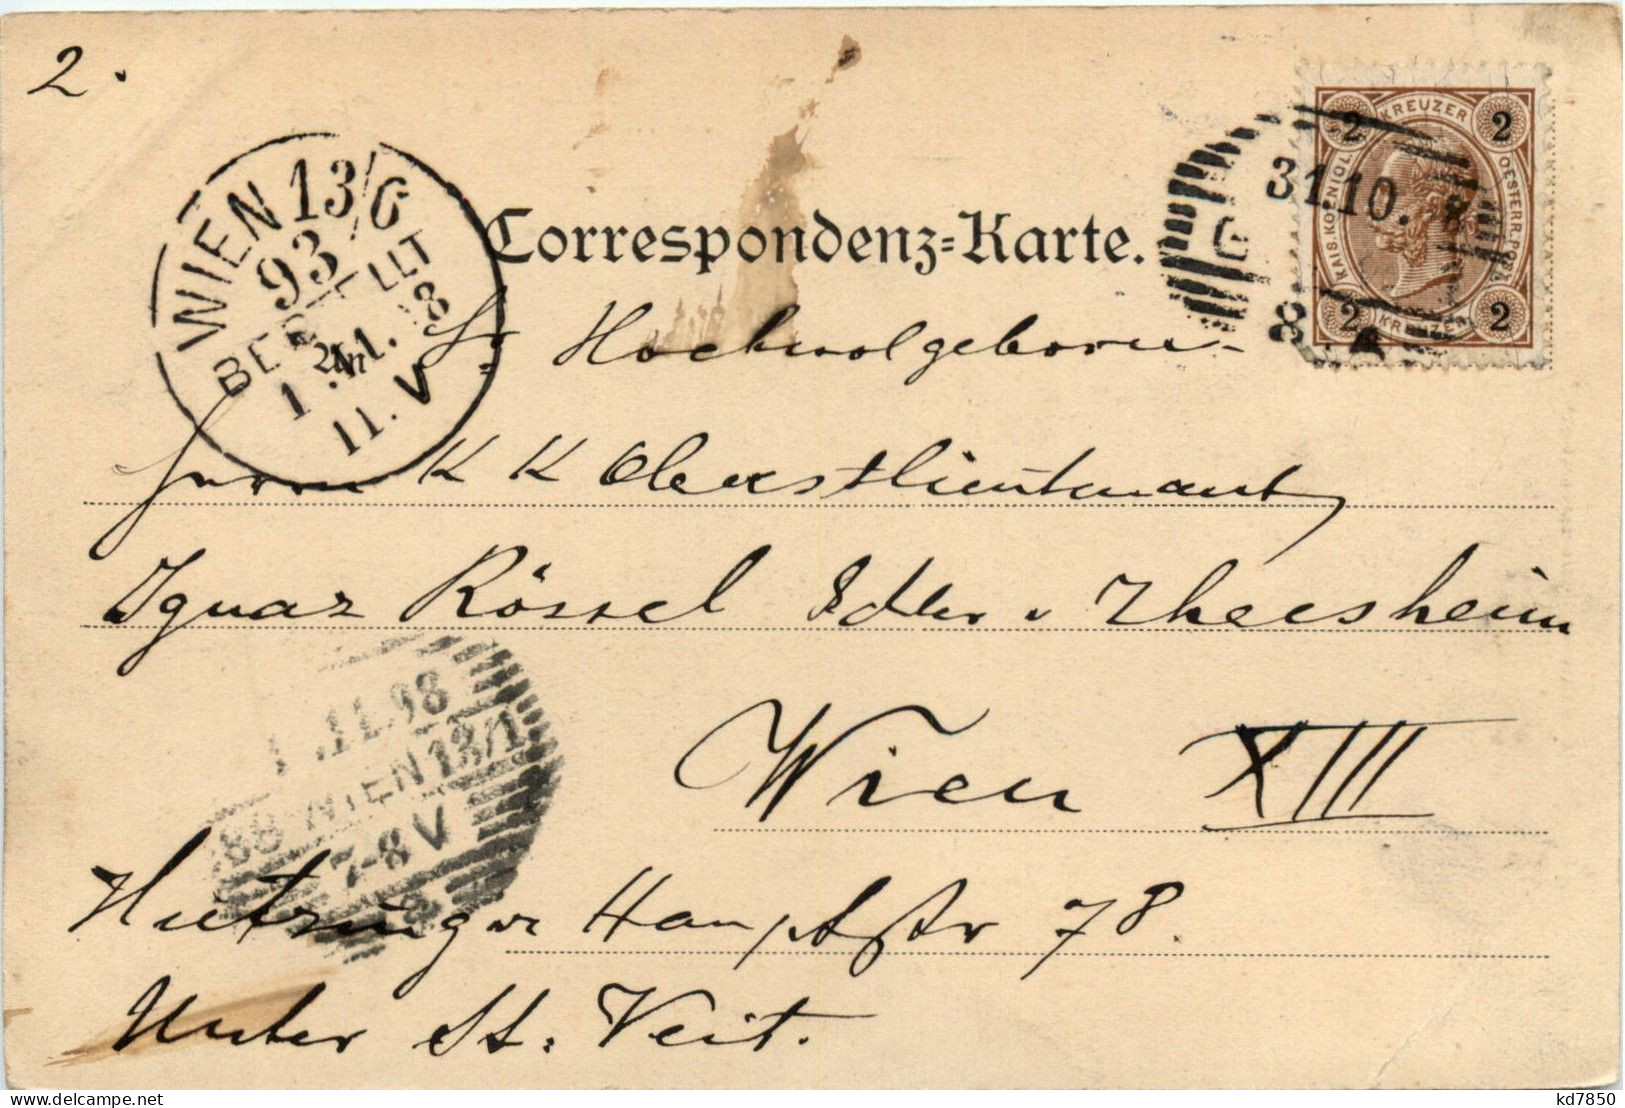 2.
KREUZER
2 2
KAIS. KOENIGL.
OESTERR. POST
2 2
KREUZER
31.10.
8
WIEN 13/6
93
BESTELLT
1. 11. 98
11. V
Correspondenz-Karte.
Sr Hochwolgeboren
Herrn K K Oberstlieutenant
Ignaz Rössel Edler v Theesheim
Wien XIII
1.11.98
88 WIEN 13/1
7-8 V
Hietzinger Hauptstr 78.
Unter St. Veit.
kd7850